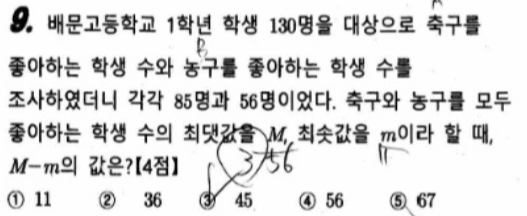 9. 배문고등학교 1학년 학생 130명을 대상으로 축구를
좋아하는 학생 수와 농구를 좋아하는 학생 수를
조사하였더니 각각 85명과 56명이었다. 축구와 농구를 모두
좋아하는 학생 수의 최댓값을 M, 최솟값을 m이라 할 때,
M-m의 값은?[4점]
① 11 ② 36 ③ 45 ④ 56 ⑤ 67